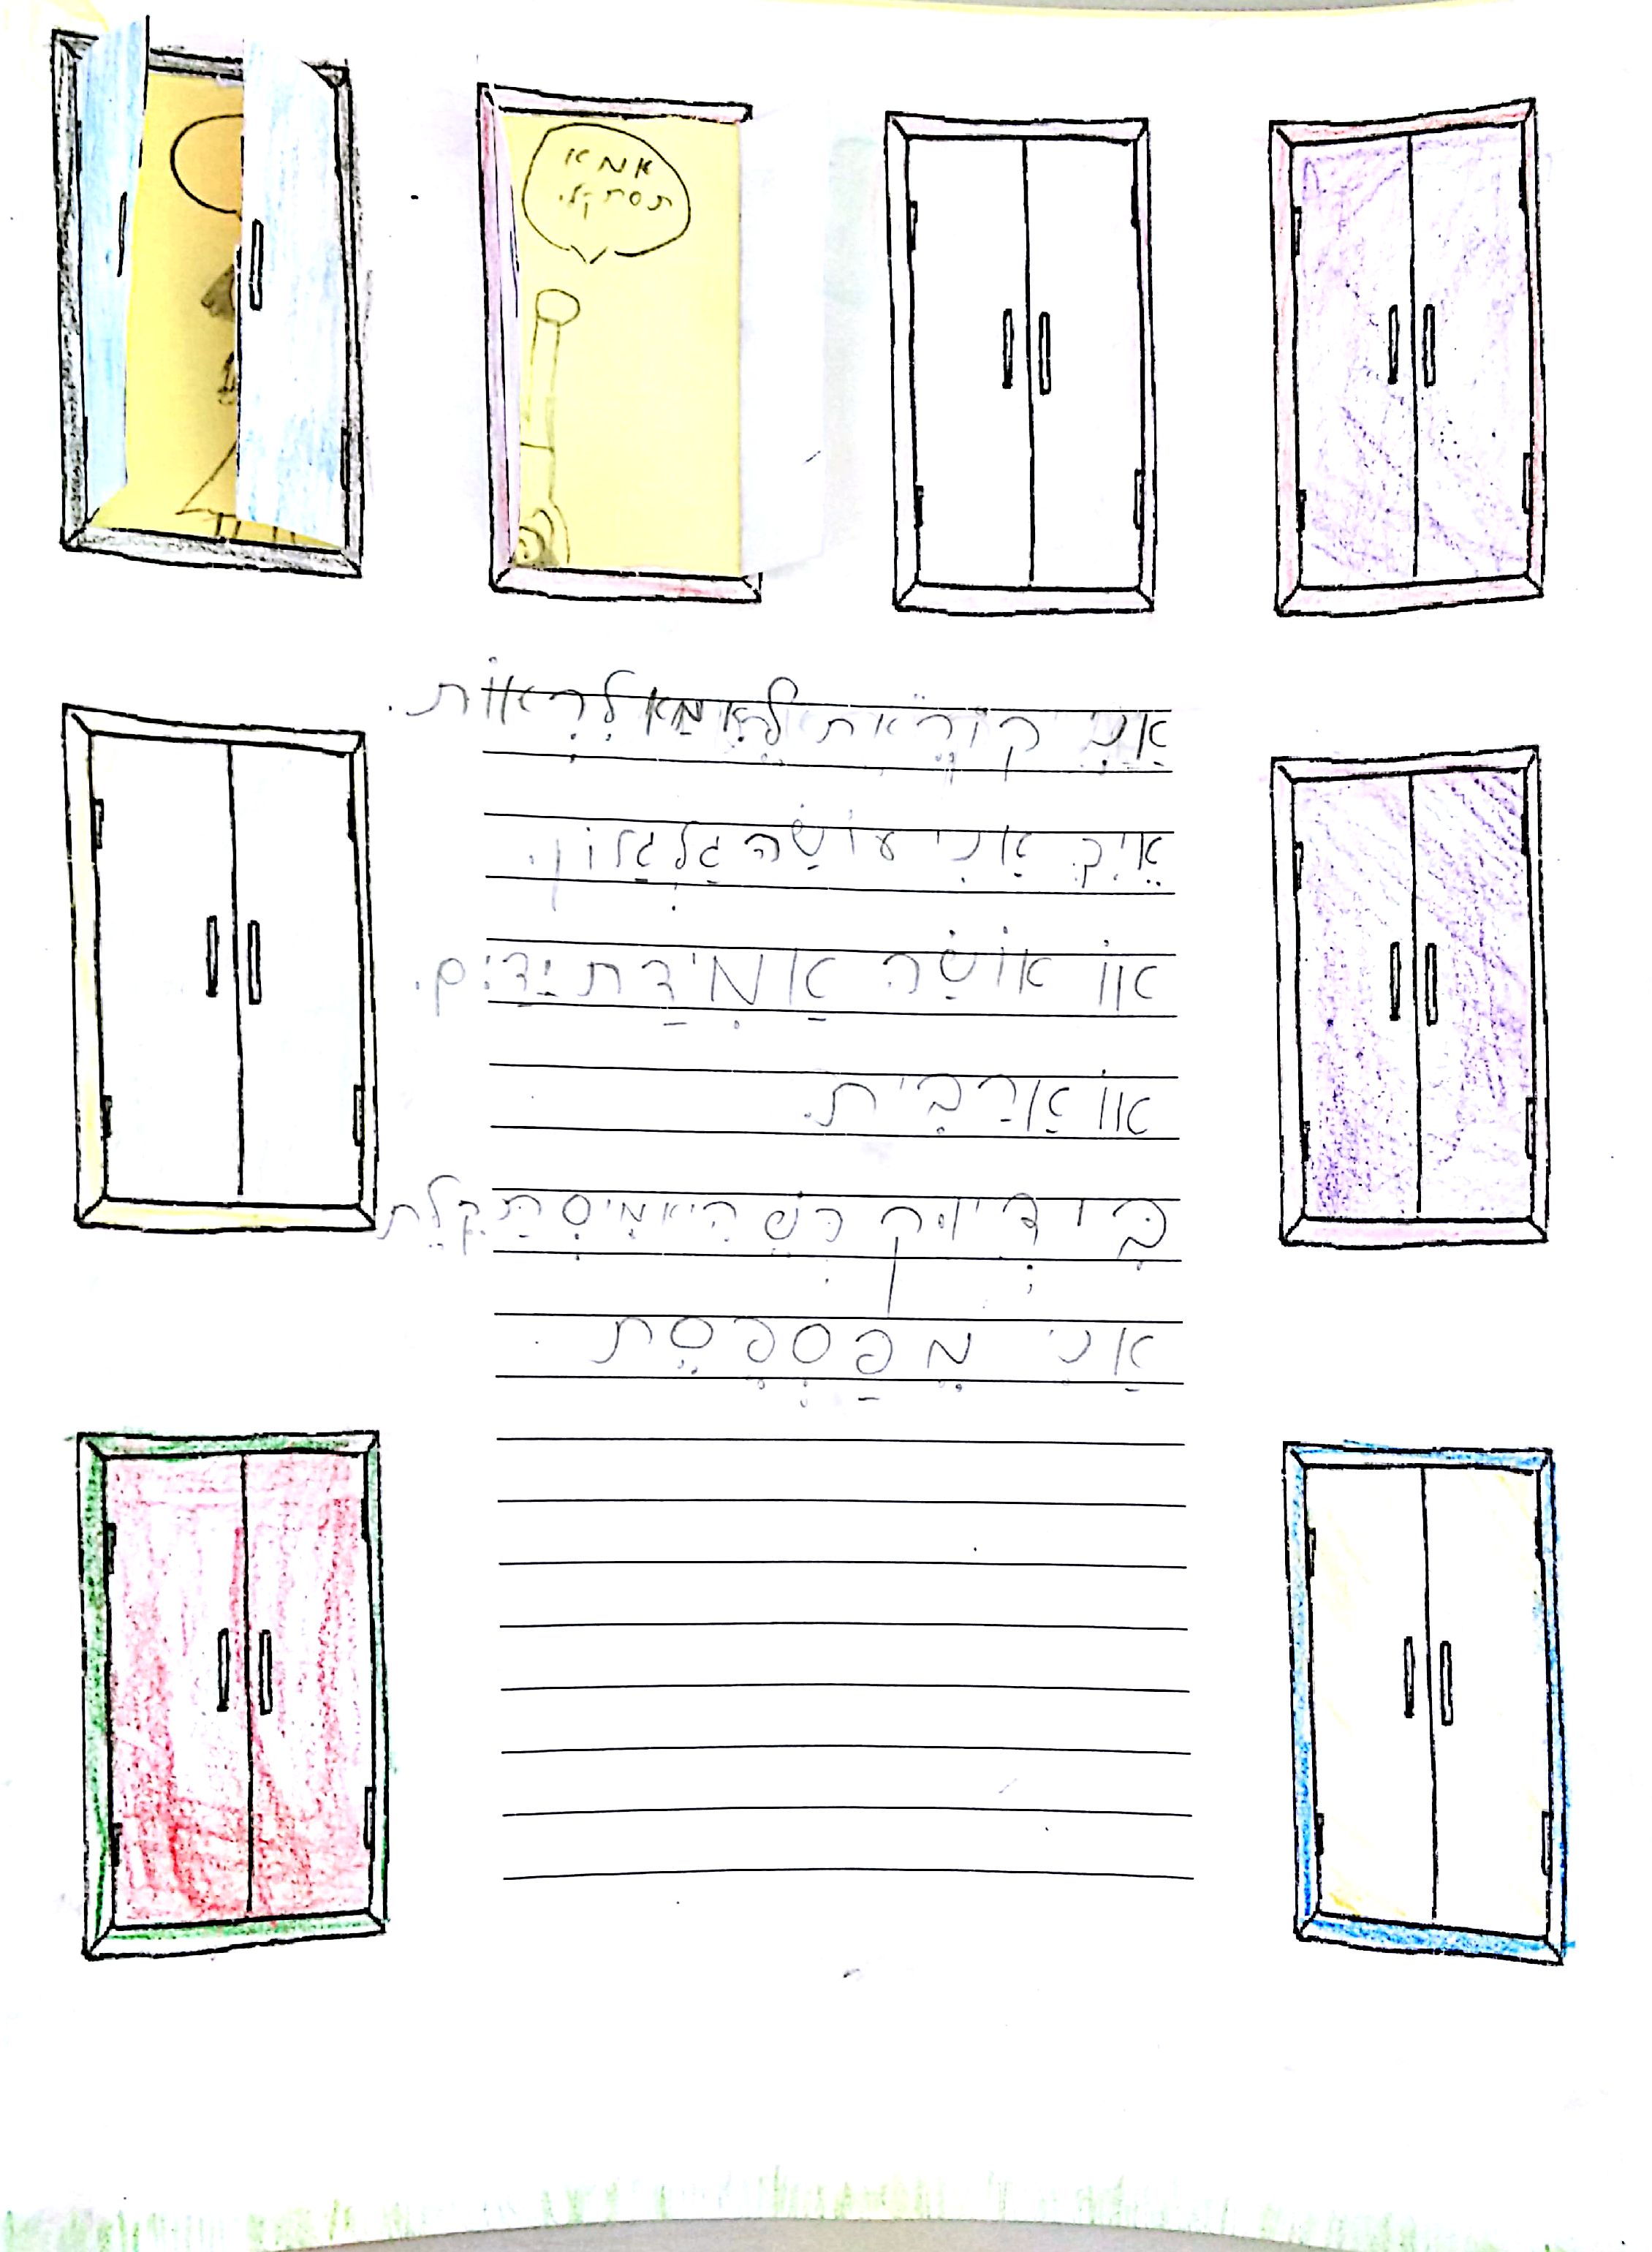 אמא
תסתקלי
אֲנִי קוֹרֵאת לְאִמָא לִרְאוֹת.
אֵיךְ אַנִי עוֹשָׂה גַלְגַלוֹן.
אוֹ אוֹשָׂה אַמִידַת יַדַיִם.
אוֹ אַרַבִּית.
בִּידִיוּק כְּשֶׁהִיא מִיסְתַקֶלֶת
אַנִי מְפַסְפֶסֶת